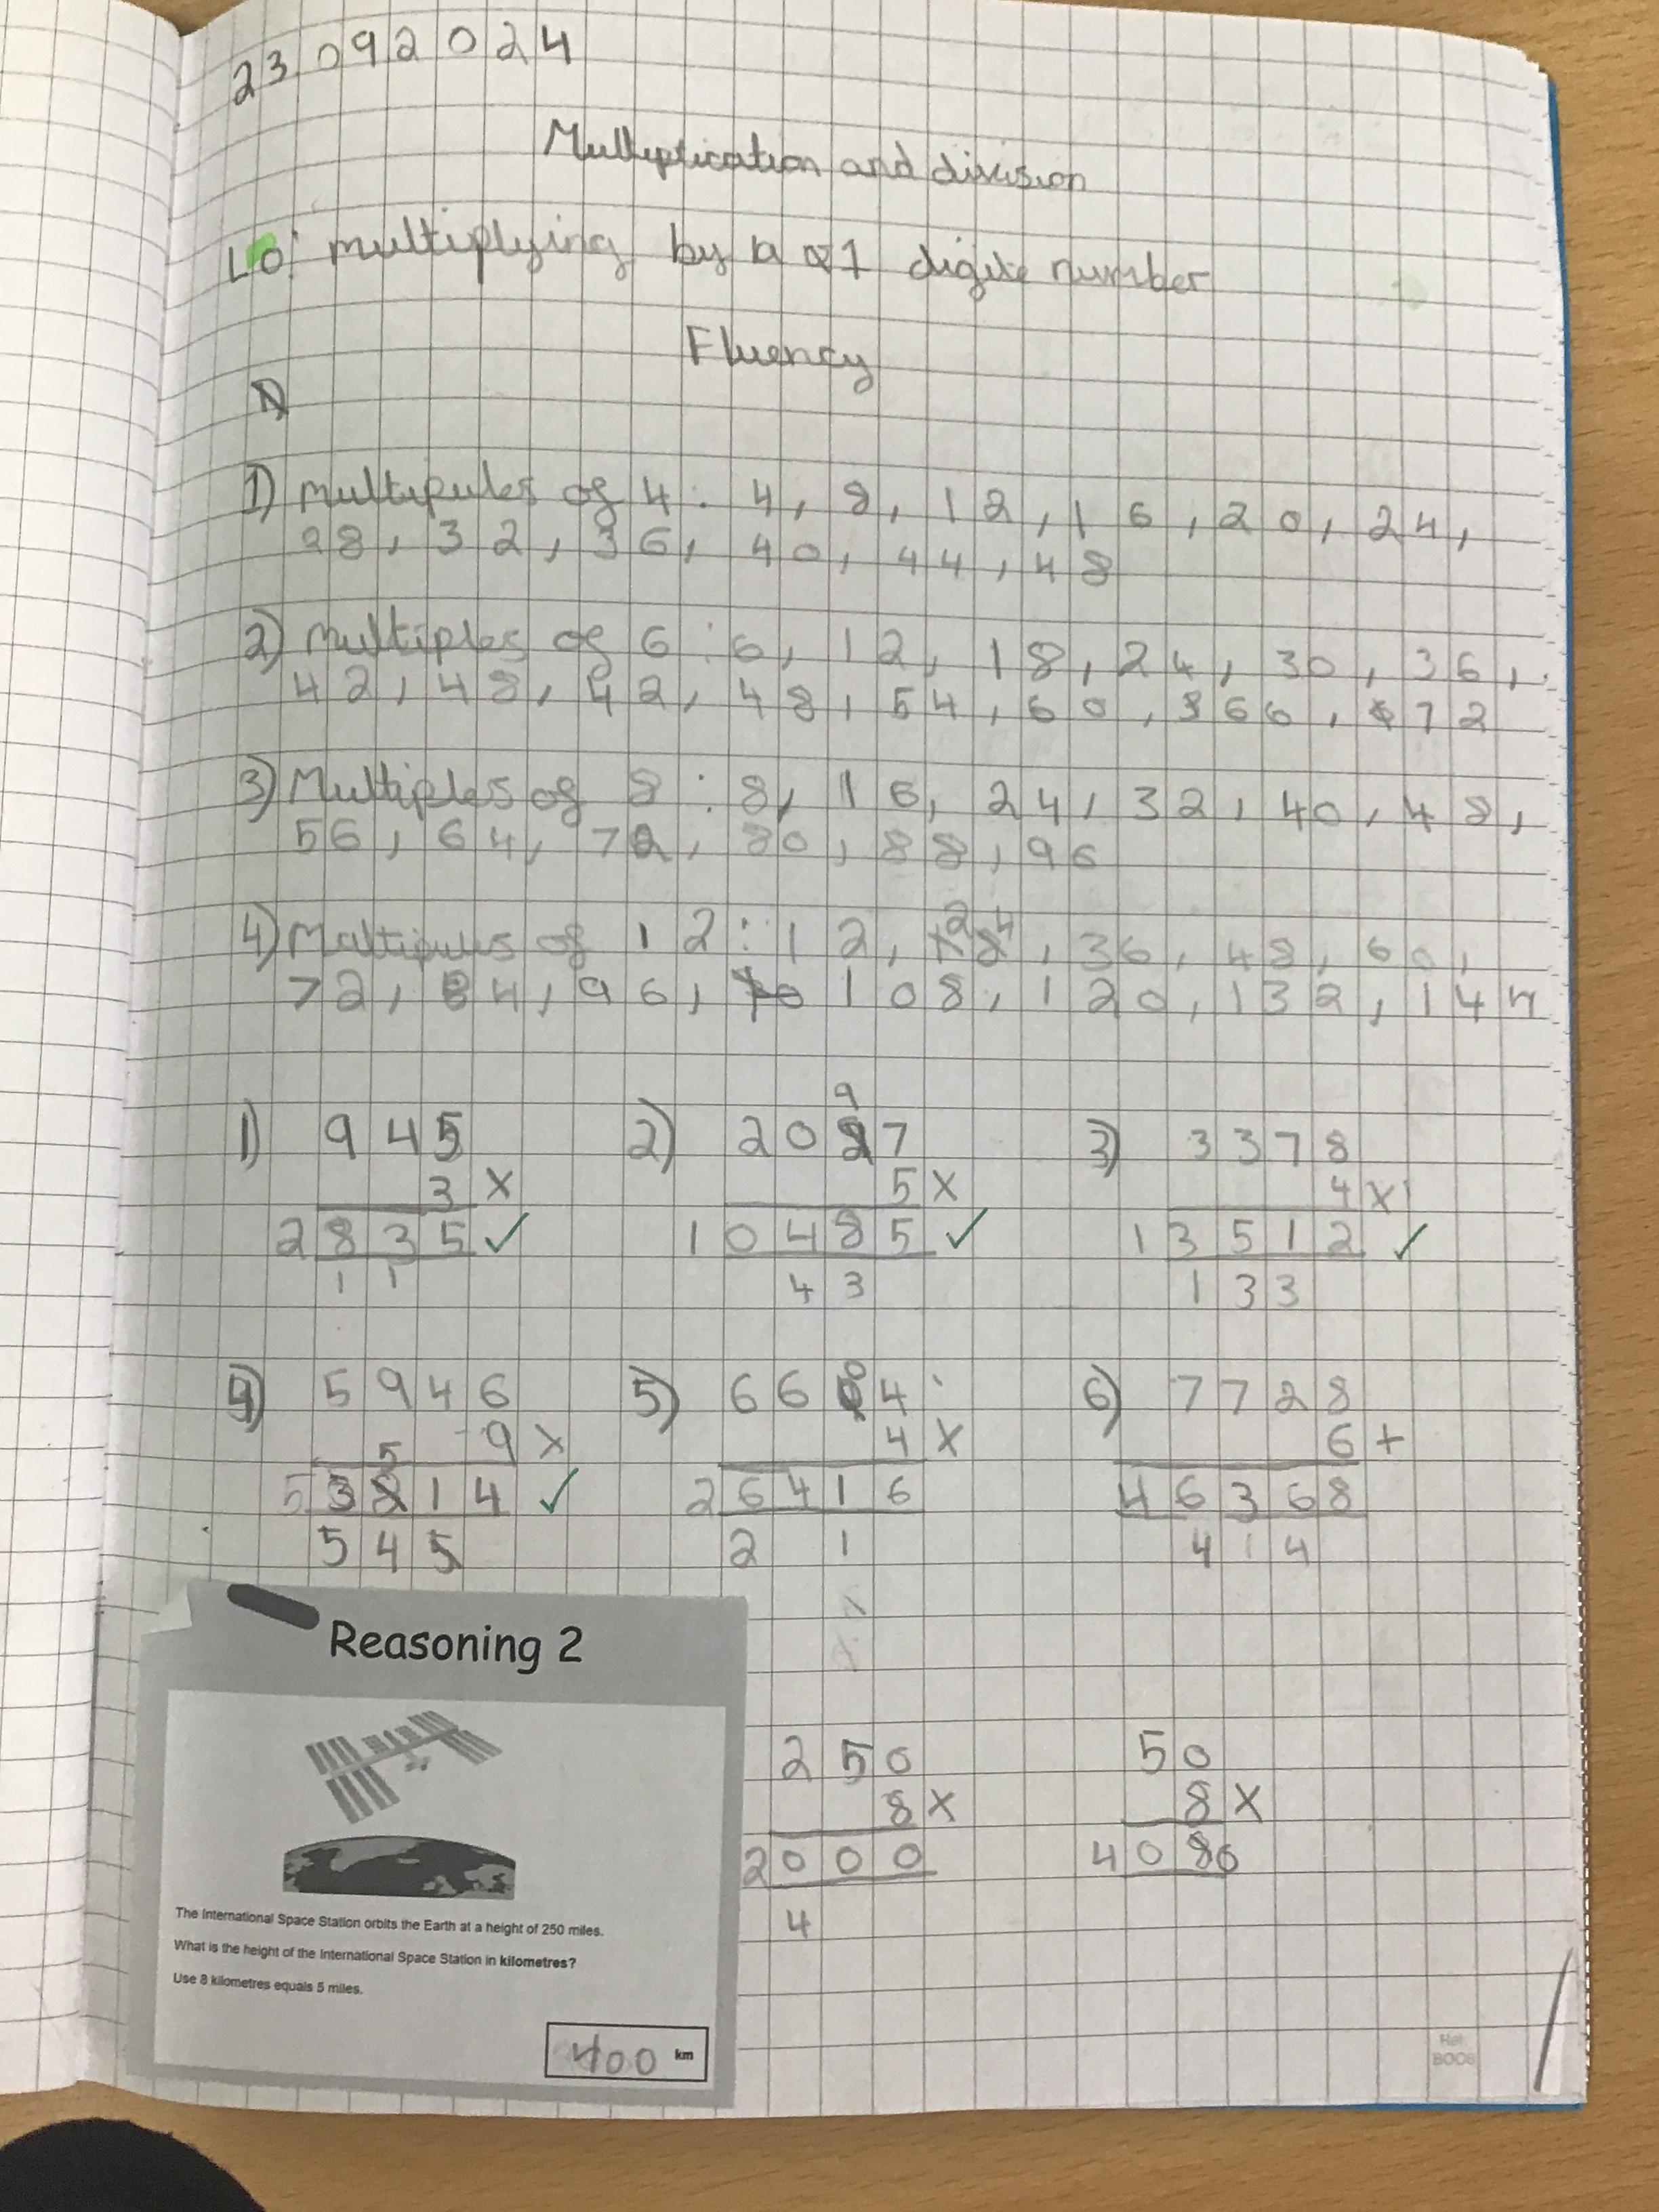 23 09 2024
Multiplication and division
LO: multiplying by a 1 digite number
Fluency
1) multipules of 4 : 4, 8, 12, 16, 20, 24,
28, 32, 36, 40, 44, 48
2) multiples of 6 : 6, 12, 18, 24, 30, 36,
42, 48, 42, 48, 54, 60, 66, 72
3) Multiples of 8 : 8, 16, 24, 32, 40, 48,
56, 64, 72, 80, 88, 96
4) Multipules of 12 : 12, 24, 36, 48, 60,
72, 84, 96, 108, 120, 132, 144
1) 945 2) 2097 3) 3378
3 x 5 x 4 x
2835 ✓ 10485 ✓ 13512 ✓
1 1 4 3 1 3 3
4) 5946 5) 6604 6) 7728
9 x 4 x 6 +
53514 ✓ 26416 46368
5 4 5 2 1 4 1 4
Reasoning 2
The International Space Station orbits the Earth at a height of 250 miles.
What is the height of the International Space Station in kilometres?
Use 8 kilometres equals 5 miles.
400 km
250 50
8 x 8 x
2000 400
4